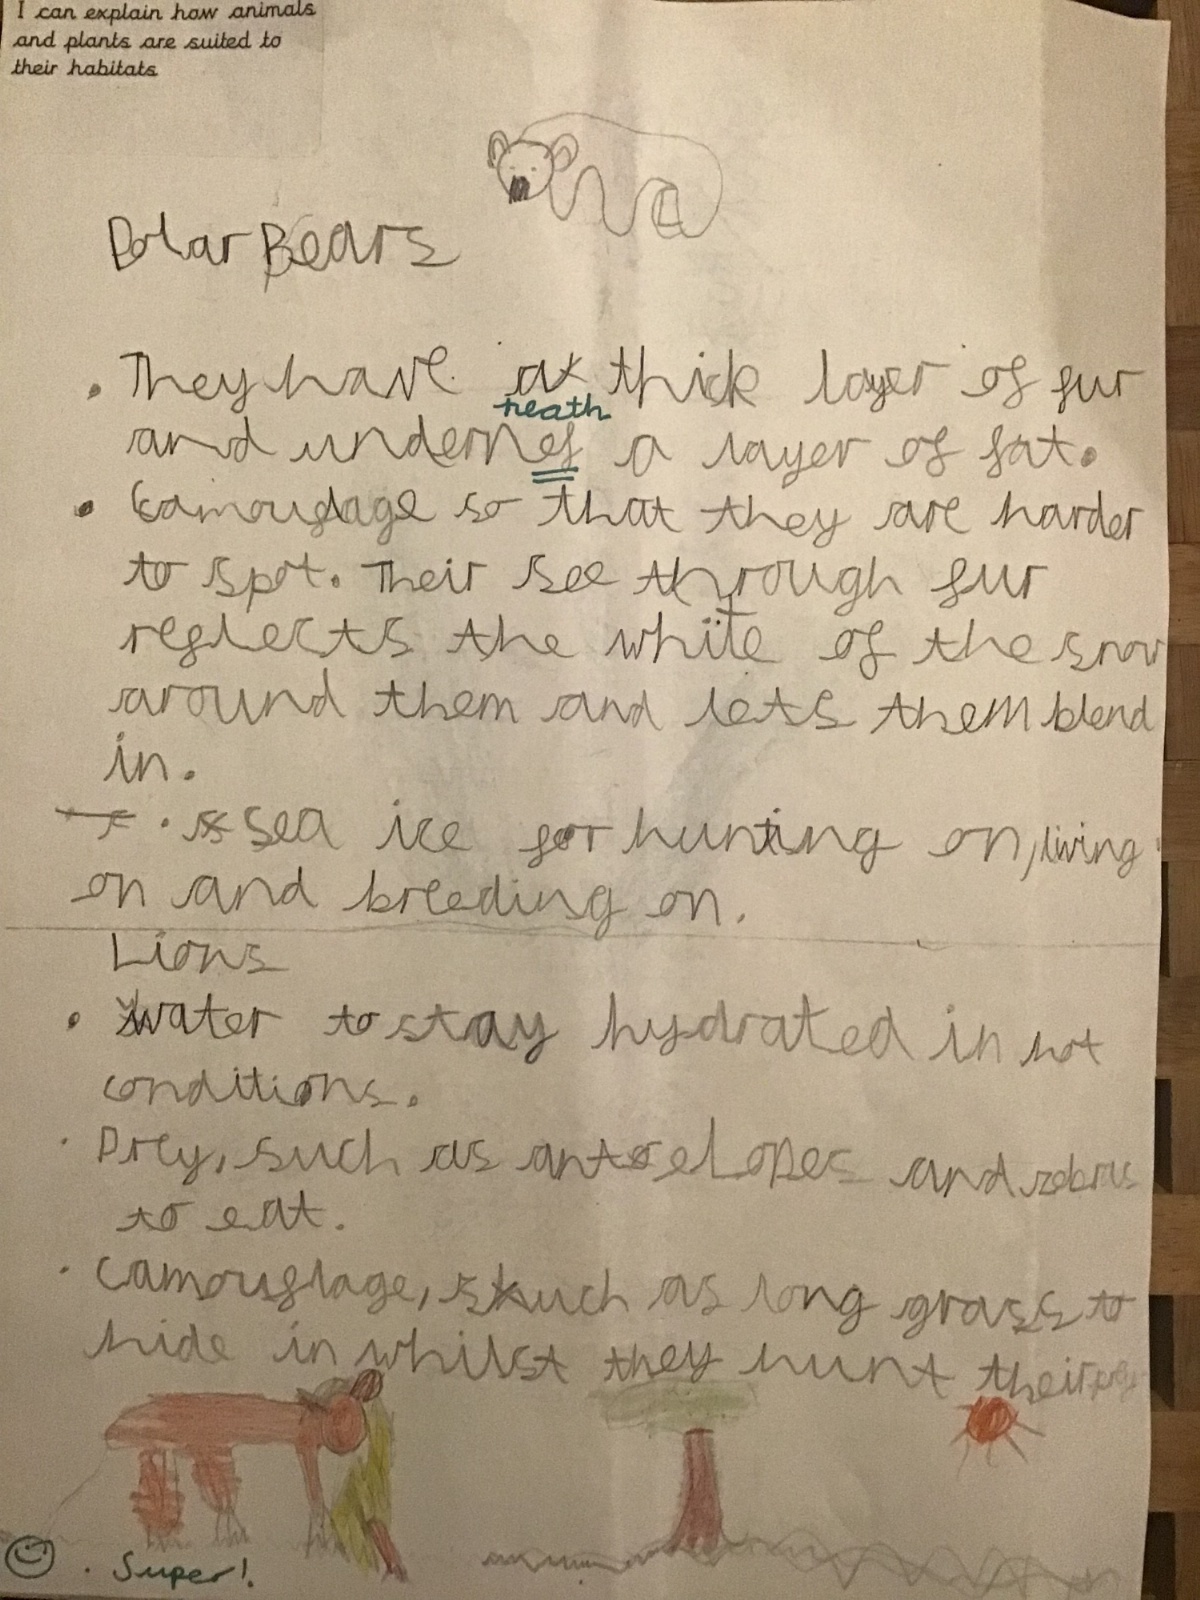 I can explain how animals
and plants are suited to
their habitats
Polar Bears
• They have a thick layer of fur
neath
and undernef a layer of fat.
• Camouflage so that they are harder
to spot. Their see through fur
reflects the white of the snow
around them and lets them blend
in.
• Sea ice for hunting on, living
on and breeding on.
Lions
• Water to stay hydrated in hot
conditions.
• Prey, such as antelopes and zebras
to eat.
• Camouflage, such as long grass to
hide in whilst they hunt their prey
Super!